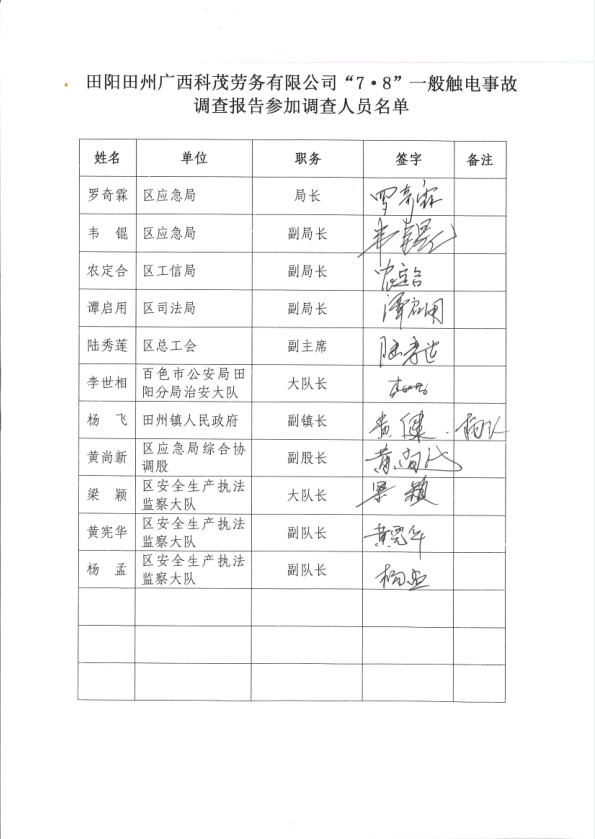 田阳田州广西科茂劳务有限公司“7·8”一般触电事故
调查报告参加调查人员名单
姓名 单位 职务 签字 备注
罗奇霖 区应急局 局长 罗奇霖
韦 锟 区应急局 副局长 韦锟
农定合 区工信局 副局长 农定合
谭启用 区司法局 副局长 谭启用
陆秀莲 区总工会 副主席 陆秀莲
李世相 百色市公安局田
阳分局治安大队 大队长
杨 飞 田州镇人民政府 副镇长 黄健
黄尚新 区应急局综合协
调股 副股长
梁 颖 区安全生产执法
监察大队 大队长 梁颖
黄宪华 区安全生产执法
监察大队 副队长 黄宪华
杨 孟 区安全生产执法
监察大队 副队长 杨孟